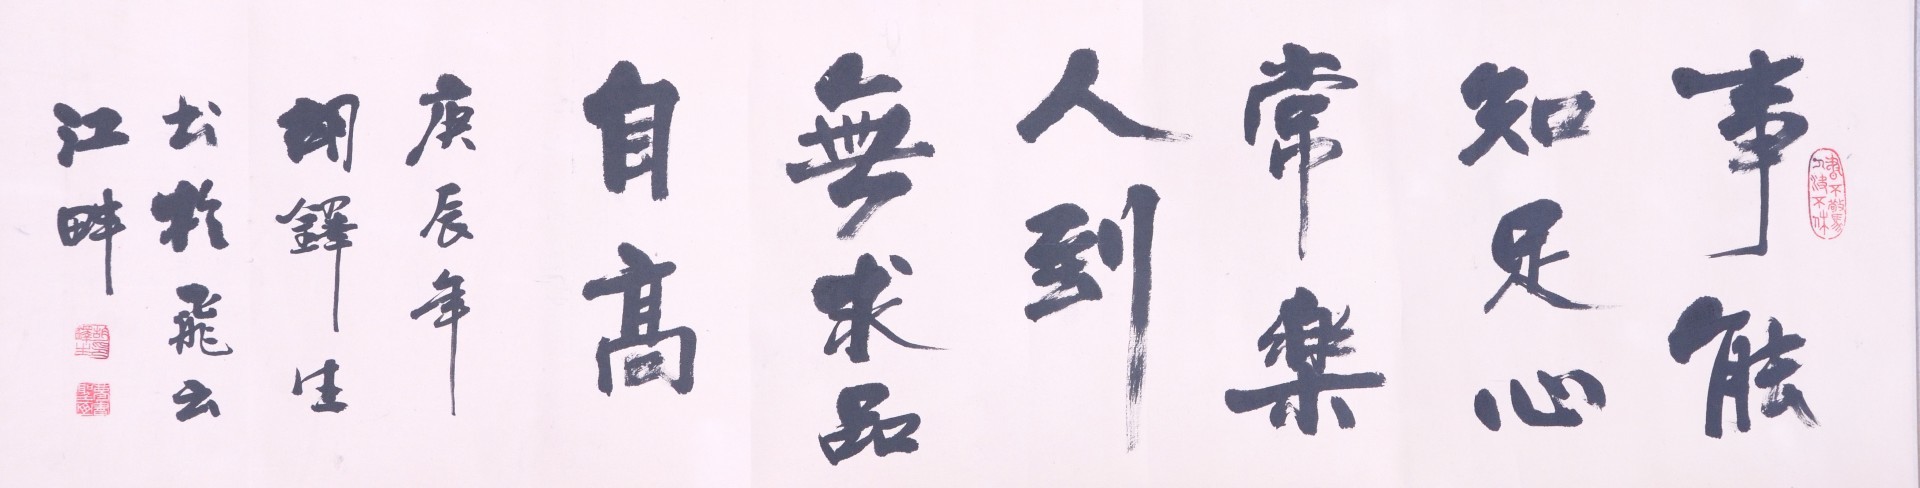 事能
知足心
常樂
人到
無求品
自高
庚辰年
胡鐸生
书於飛云
江畔